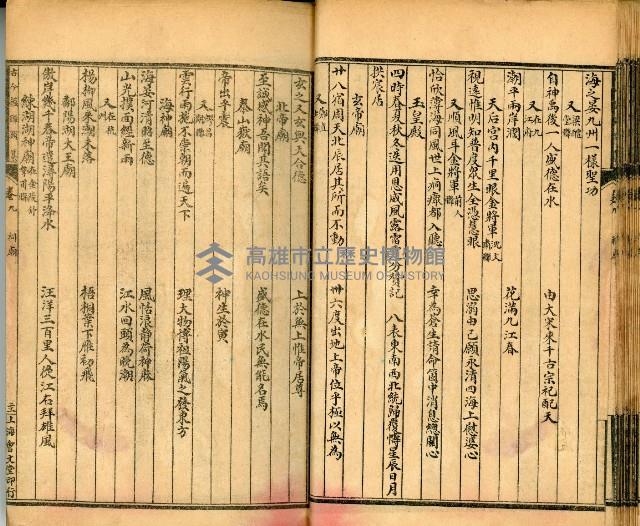 海之晏九州一樣聖功
自神禹後一人盛德在水
由大宋東千古宗祀配天
又
潮平兩岸濶
花滿九江春
天后宮內千里眼金將軍
視遠惟明知普度眾生全憑慧眼
思溺由己願永清四海上慰婆心
又順風耳金將軍前人
恰欣薄海同風世上痌瘝都入聽
幸為蒼生請命箇中消息總關心
玉皇殿
四時春夏秋冬迭用恩威風露雷
八表東南西北統歸覆幬星辰日月
拱宸居
玄帝廟
廿八宿周天北辰居其所而不動
卅六度出地上帝位乎極以無為
又
玄之又玄與天合德
上於無上惟帝居尊
北帝廟
至誠感神吾聞其語矣
盛德在水民無能名焉
泰山嶽廟
帝出乎震
神生於寅
又
雲行雨施不崇朝而遍天下
理大物博祖陽氣之發東方
海神廟
海晏河清昭至德
風恬浪靜荷神庥
又在杭州
山光撲面經新雨
江水回頭為晚潮
楊柳風來潮未落
梧桐葉下雁初飛
鄱陽湖大王廟
傲岸幾千春帝遣潯陽平漲水
汪洋三百里人從江右拜雄風
練湖湖神廟
卷九
祠廟
上海會文堂印行
高雄市立歷史博物館
KAOHSIUNG MUSEUM OF HISTORY